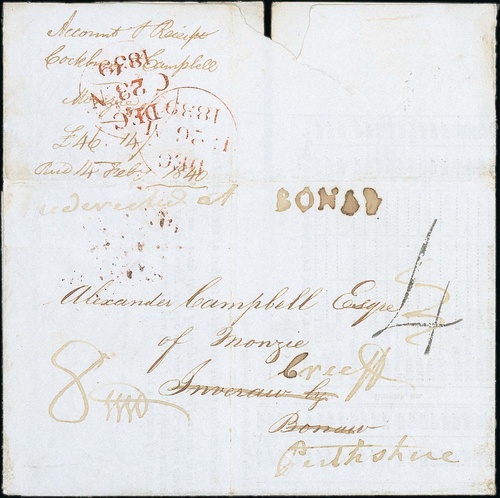 Account & Receipt
Cockburn & Campbell
Monzie
£46. 14/
Paid 14 Feby 1840
1839
C 23 N
DEC
1839
26
DEC
redirected at
BONAW
4
Alexander Campbell Esqre
of Monzie
Crieff
8
Inveraw by
Bonaw
Perthshire